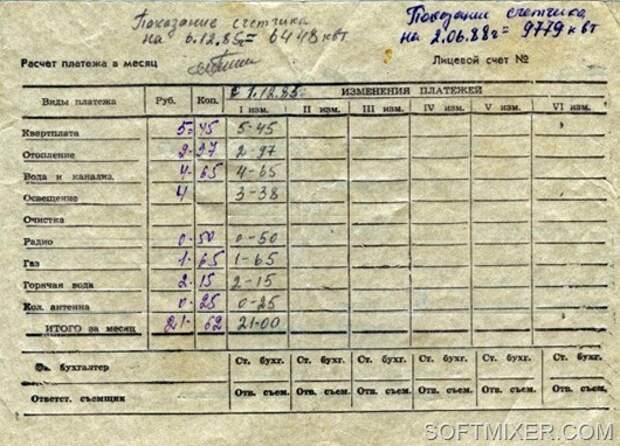 Показание счетчика
на 6.12.85г = 6448 квт
Показании счетчика
на 2.06.88г = 9779 квт
Расчет платежа в месяц
Лицевой счет №
Виды платежа Руб. Коп. С 1.12.85г ИЗМЕНЕНИЯ ПЛАТЕЖЕЙ
I изм. II изм. III изм. IV изм. V изм. VI изм.
Квартплата 5 = 45 5-45
Отопление 2-97 2-97
Вода и канализ. 4-65 4-65
Освещение 4 3-38
Очистка
Радио 0-50 0-50
Газ 1-65 1-65
Горячая вода 2-15 2-15
Кол. антенна 0-25 0-25
ИТОГО за месяц 21-62 21-00
Ст. бухгалтер Ст. бухг. Ст. бухг. Ст. бухг. Ст. бухг. Ст. бухг. Ст. бухг.
Ответст. съемщик Отв. съем. Отв. съем. Отв. съем. Отв. съем. Отв. съем. Отв. съем.
SOFTMIXER.COM